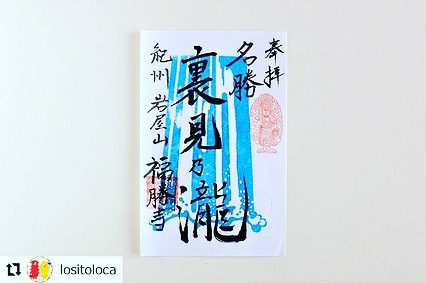 奉拝
名勝
裏見乃瀧
紀州 岩屋山 福勝寺
lositoloca